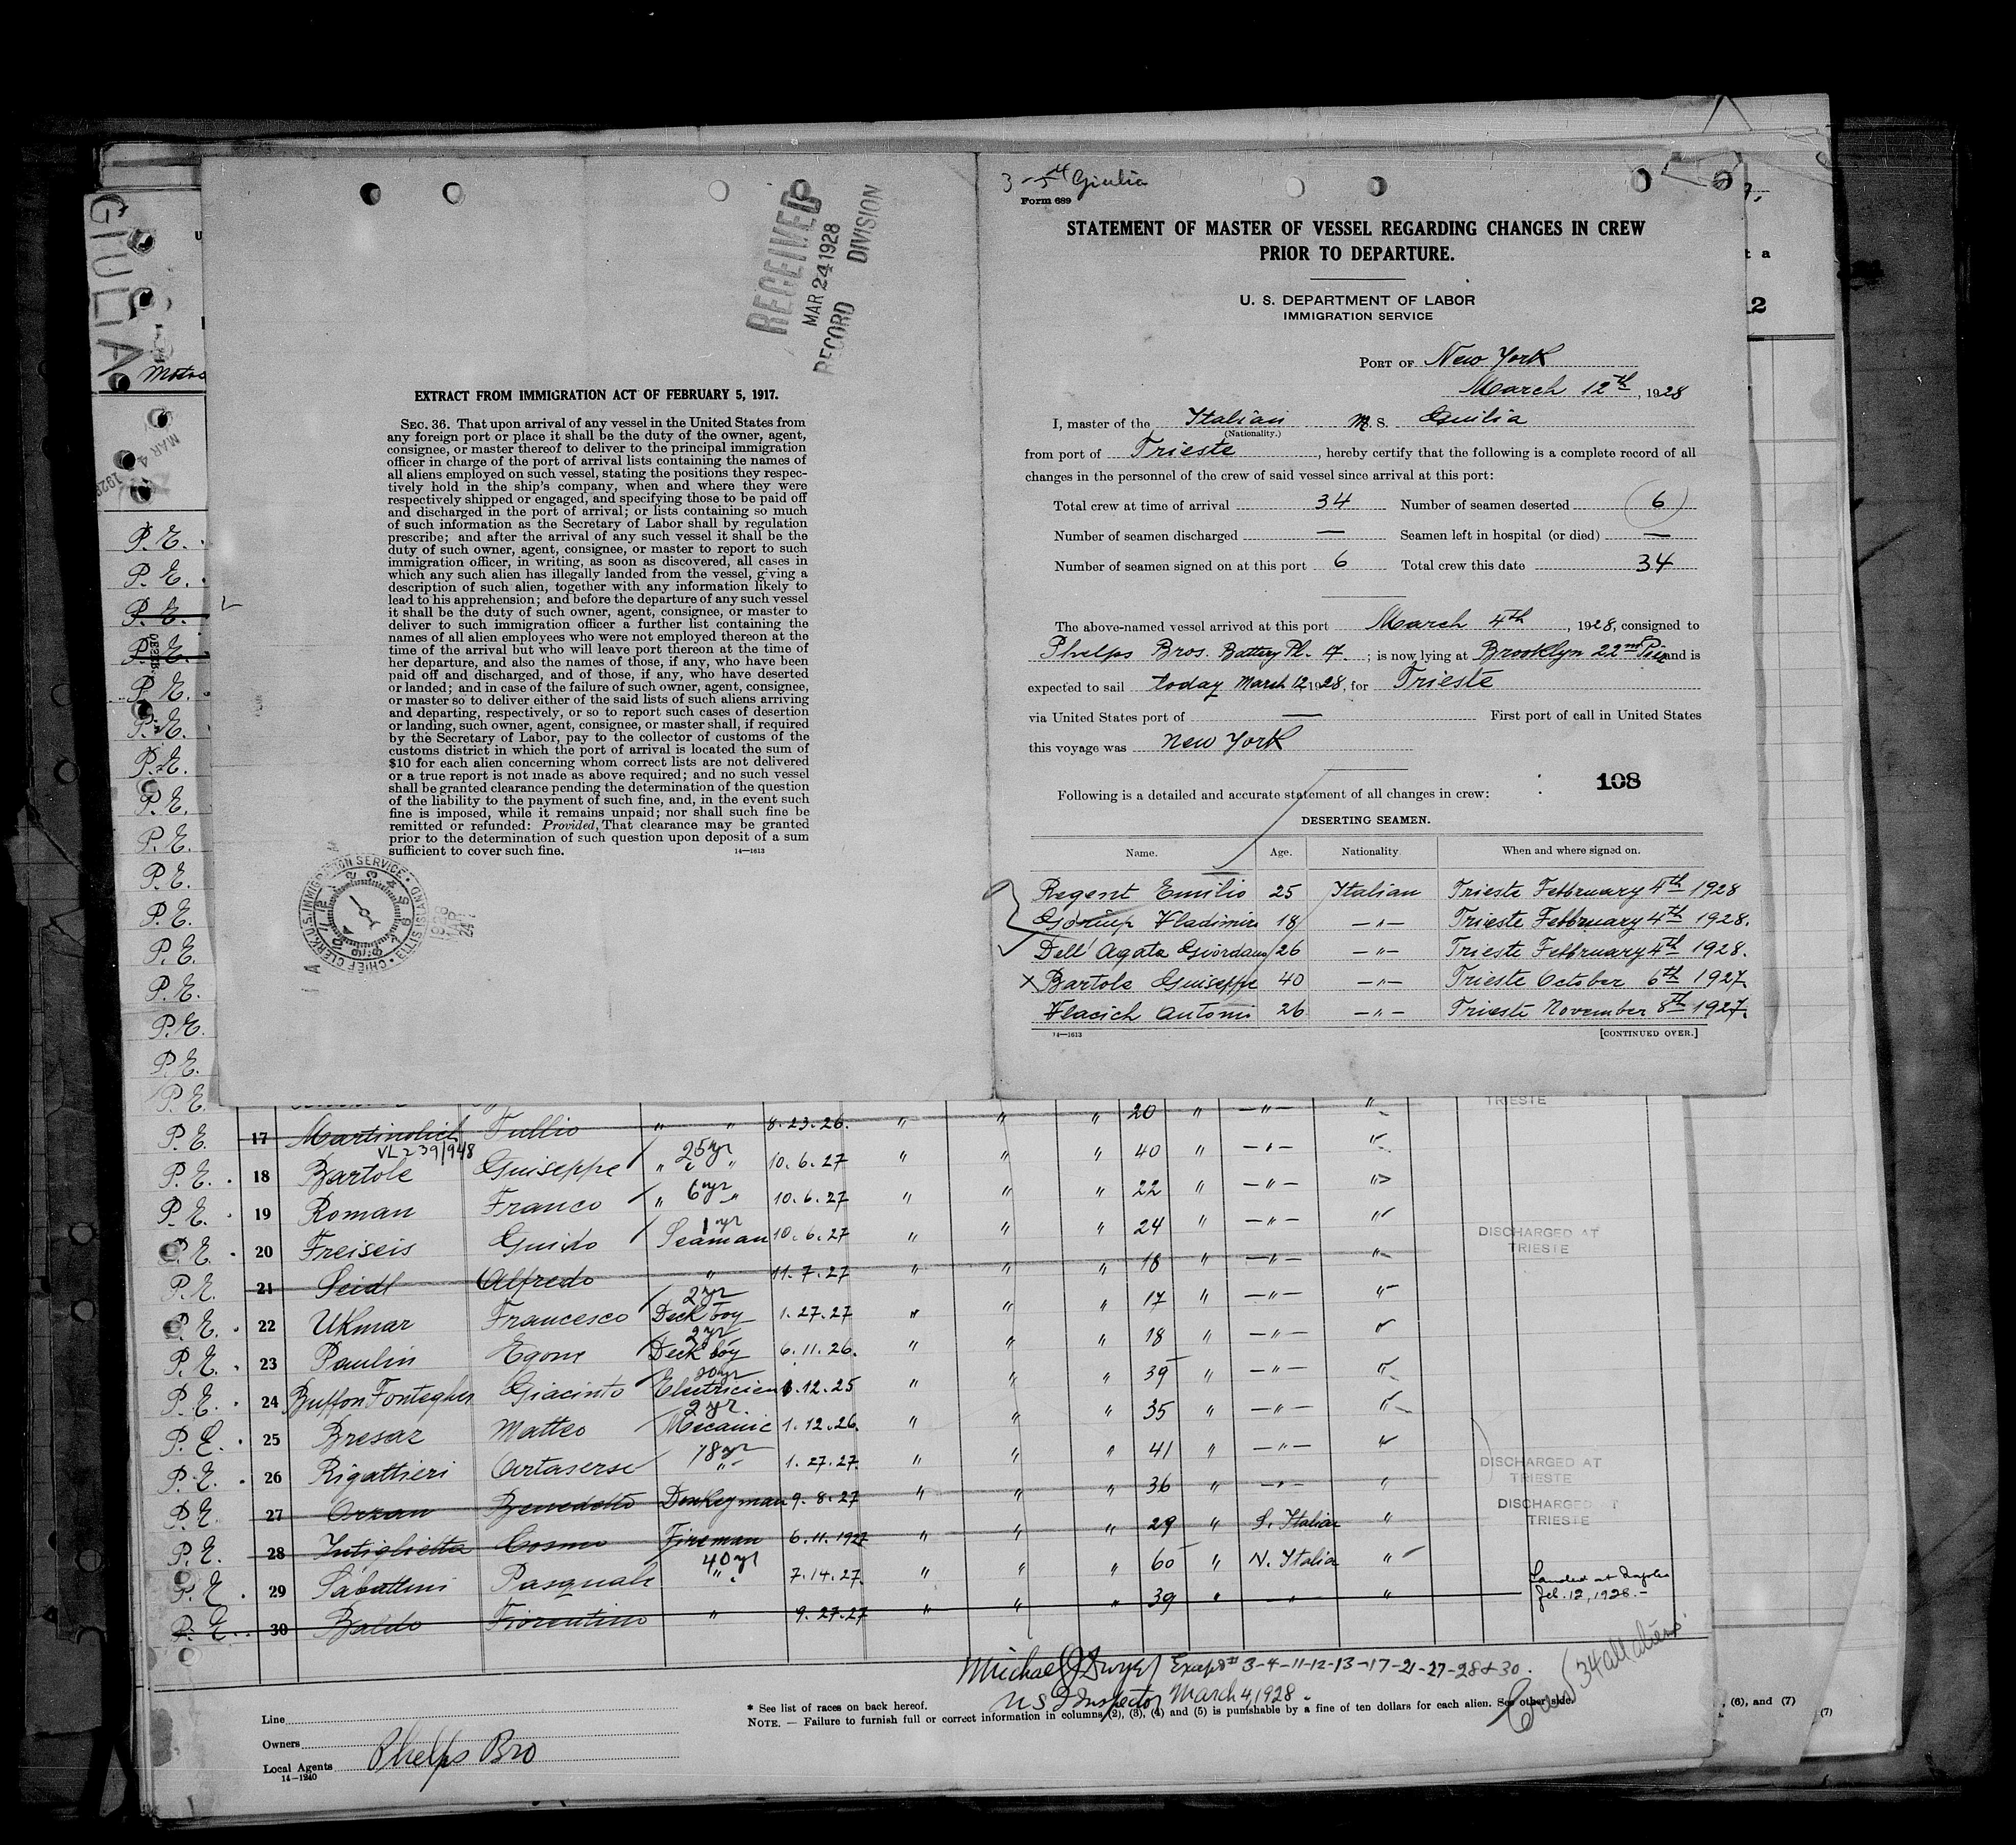 GIULIA
Motor
MAR 4
1928
RECEIVED
MAR 24 1928
RECORD DIVISION
EXTRACT FROM IMMIGRATION ACT OF FEBRUARY 5, 1917.
SEC. 36. That upon arrival of any vessel in the United States from
any foreign port or place it shall be the duty of the owner, agent,
consignee, or master thereof to deliver to the principal immigration
officer in charge of the port of arrival lists containing the names of
all aliens employed on such vessel, stating the positions they respec-
tively hold in the ship's company, when and where they were
respectively shipped or engaged, and specifying those to be paid off
and discharged in the port of arrival; or lists containing so much
of such information as the Secretary of Labor shall by regulation
prescribe; and after the arrival of any such vessel it shall be the
duty of such owner, agent, consignee, or master to report to such
immigration officer, in writing, as soon as discovered, all cases in
which any such alien has illegally landed from the vessel, giving a
description of such alien, together with any information likely to
lead to his apprehension; and before the departure of any such vessel
it shall be the duty of such owner, agent, consignee, or master to
deliver to such immigration officer a further list containing the
names of all alien employees who were not employed thereon at the
time of the arrival but who will leave port thereon at the time of
her departure, and also the names of those, if any, who have been
paid off and discharged, and of those, if any, who have deserted
or landed; and in case of the failure of such owner, agent, consignee,
or master so to deliver either of the said lists of such aliens arriving
and departing, respectively, or so to report such cases of desertion
or landing, such owner, agent, consignee, or master shall, if required
by the Secretary of Labor, pay to the collector of customs of the
customs district in which the port of arrival is located the sum of
$10 for each alien concerning whom correct lists are not delivered
or a true report is not made as above required; and no such vessel
shall be granted clearance pending the determination of the question
of the liability to the payment of such fine, and, in the event such
fine is imposed, while it remains unpaid; nor shall such fine be
remitted or refunded: Provided, That clearance may be granted
prior to the determination of such question upon deposit of a sum
sufficient to cover such fine. 14—1613
CHIEF CLERK, U.S. IMMIGRATION SERVICE, ELLIS ISLAND
Giulia
Form 689
STATEMENT OF MASTER OF VESSEL REGARDING CHANGES IN CREW
PRIOR TO DEPARTURE.
U. S. DEPARTMENT OF LABOR
IMMIGRATION SERVICE
PORT OF New York
March 12th, 1928
I, master of the Italian M. S. Guilia
(Nationality.)
from port of Trieste, hereby certify that the following is a complete record of all
changes in the personnel of the crew of said vessel since arrival at this port:
Total crew at time of arrival 34 Number of seamen deserted 6
Number of seamen discharged — Seamen left in hospital (or died) —
Number of seamen signed on at this port 6 Total crew this date 34
The above-named vessel arrived at this port March 4th, 1928, consigned to
Phelps Bros. Battery Pl. 17. ; is now lying at Brooklyn 22nd Pier and is
expected to sail today March 12 1928, for Trieste
via United States port of — First port of call in United States
this voyage was New York
108
Following is a detailed and accurate statement of all changes in crew:
DESERTING SEAMEN.
Name. Age. Nationality. When and where signed on.
Regent Emilio 25 Italian Trieste Febbruary 4th 1928
Goriup Vladimiro 18 —"— Trieste Febbruary 4th 1928.
Dell'Agata Giordano 26 —"— Trieste Febbruary 4th 1928.
x Bartole Guiseppe 40 —"— Trieste October 6th 1927.
Vlacich Antonio 26 —"— Trieste November 8th 1927.
14—1613 [CONTINUED OVER.]
P.E. " 20 " —"— " TRIESTE
P.E. 17 Martinolich Tullio " " 8.23.26. " " " 20 " —"— "
VL 239/948
P.E. 18 Bartole Guiseppe 25 yr " " 10.6.27 " " " 40 " —"— "
P.E. 19 Roman Franco 6 yr " " 10.6.27 " " " 22 " —"— "
P.E. 20 Freiseis Guido 1 yr Seaman 10.6.27 " " " 24 " —"— "
P.E. 21 Seidl Alfredo " 11.7.27 " " " 18 " —"— " DISCHARGED AT TRIESTE
P.E. 22 Ukmar Francesco 2 yr Deck boy 1.27.27 " " " 17 " —"— "
P.E. 23 Paulin Egone 2 yr Deck boy 6.11.26. " " " 18 " —"— "
P.E. 24 Buffon Fontegher Giacinto 20 yr Electricien 8.12.25 " " " 39 " —"— "
P.E. 25 Bresaz Matteo 2 yr. Mecanic 1.12.26. " " " 35 " —"— "
P.E. 26 Rigattieri Artaserse 18 yr " 1.27.27. " " " 41 " —"— "
P.E. 27 Orzan Benedetto Donkeyman 9.8.27 " " " 36 " —"— " DISCHARGED AT TRIESTE
P.E. 28 Intiglietta Cosmo Fireman 6.11.1927 " " " 29 " S. Italian " DISCHARGED AT TRIESTE
P.E. 29 Sabattini Pasquale 40 yr " 7.14.27. " " " 60 " N. Italia "
P.E. 30 Baldo Fiorentino " 9.27.27 " " " 39 " —"— " Landed at Naples Feb. 12, 1928.–
Michael J Dwyer Except # 3-4-11-12-13-17-21-27-28 & 30.
U S I Inspector March 4, 1928.
Crew (34 all aliens)
* See list of races on back hereof.
NOTE. — Failure to furnish full or correct information in columns (2), (3), (4) and (5) is punishable by a fine of ten dollars for each alien. See other side.
(6), and (7)
(7)
Line
Owners
Local Agents Phelps Bro
14—1240